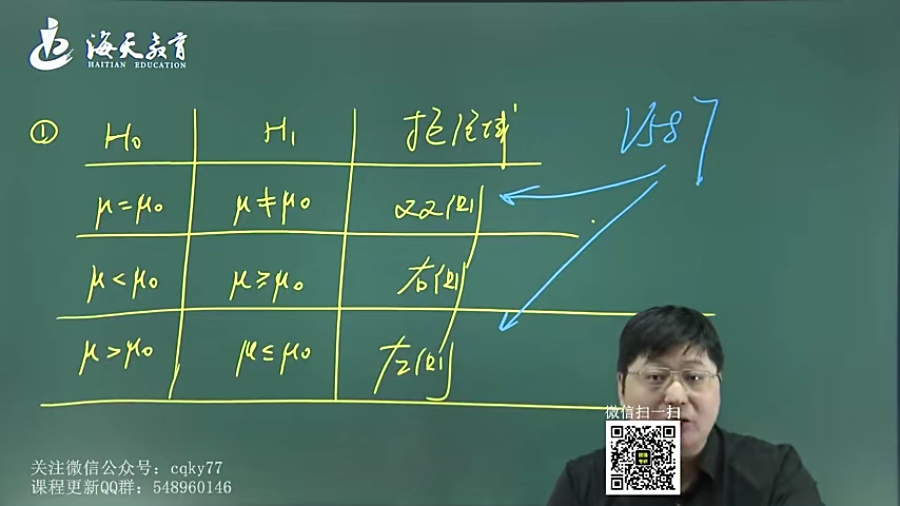 海天教育
HAITIAN EDUCATION
① H₀ H₁ 拒绝域
μ=μ₀ μ≠μ₀ 双侧
μ<μ₀ μ≥μ₀ 右侧
μ>μ₀ μ≤μ₀ 左侧
微信扫一扫
关注微信公众号：cqky77
课程更新QQ群：548960146